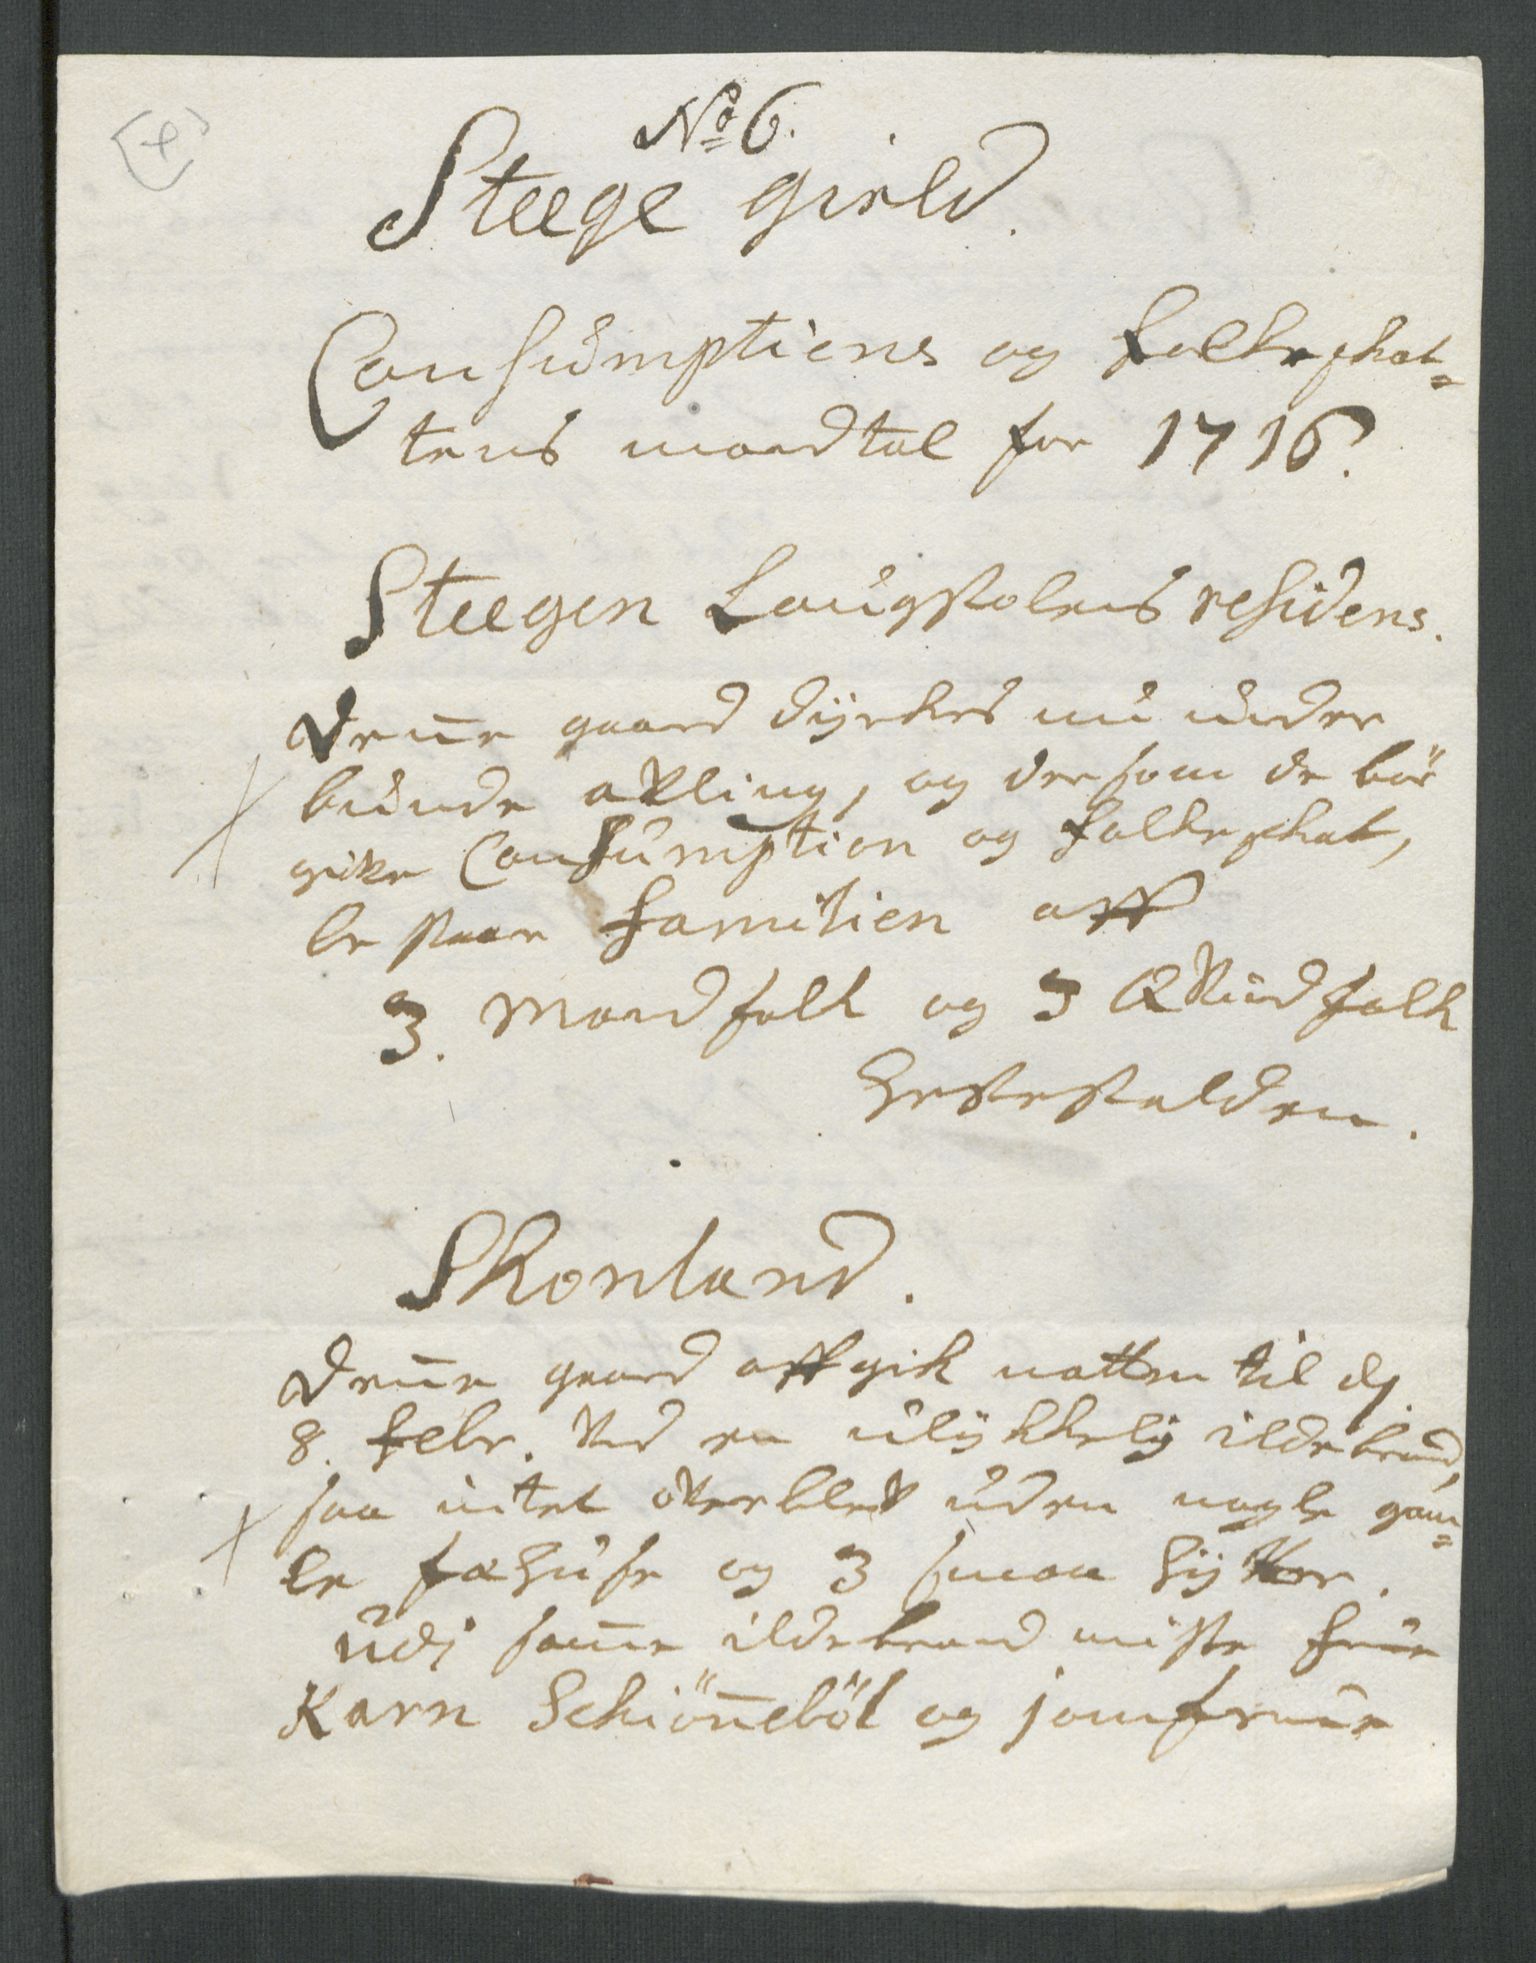 No 6.
Steege gield.
Consumptiens og folkeskat=
tens mandtal for 1716.
Steegen Laugstolens residens.
Denne gaard dyrkes nu under
bunde avling, og dersom de bör
give Consumption og folkeskat,
bestaar familien aff
3. Mandfolk og 3 Qvindfolk
Hestestalden.
Skonland.
Denne gaard affgik natten til dj
8. febr. ved en ulykkelig ildebrand,
saa intet overblev uden nogle gam=
le fæhuse og 3 smaa hytter.
Udj samme ildebrand miste frue
Karn Schiönneböl og jomfrue